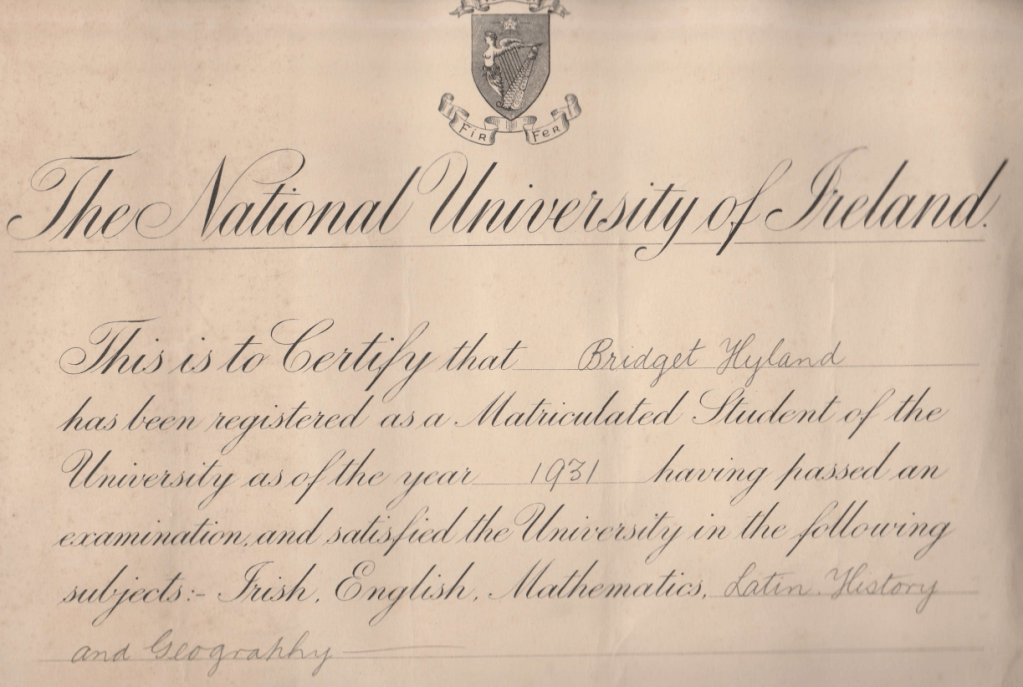 FIR FER
The National University of Ireland.
This is to Certify that Bridget Hyland
has been registered as a Matriculated Student of the
University as of the year 1931 having passed an
examination, and satisfied the University in the following
subjects:- Irish, English, Mathematics, Latin. History
and Geography